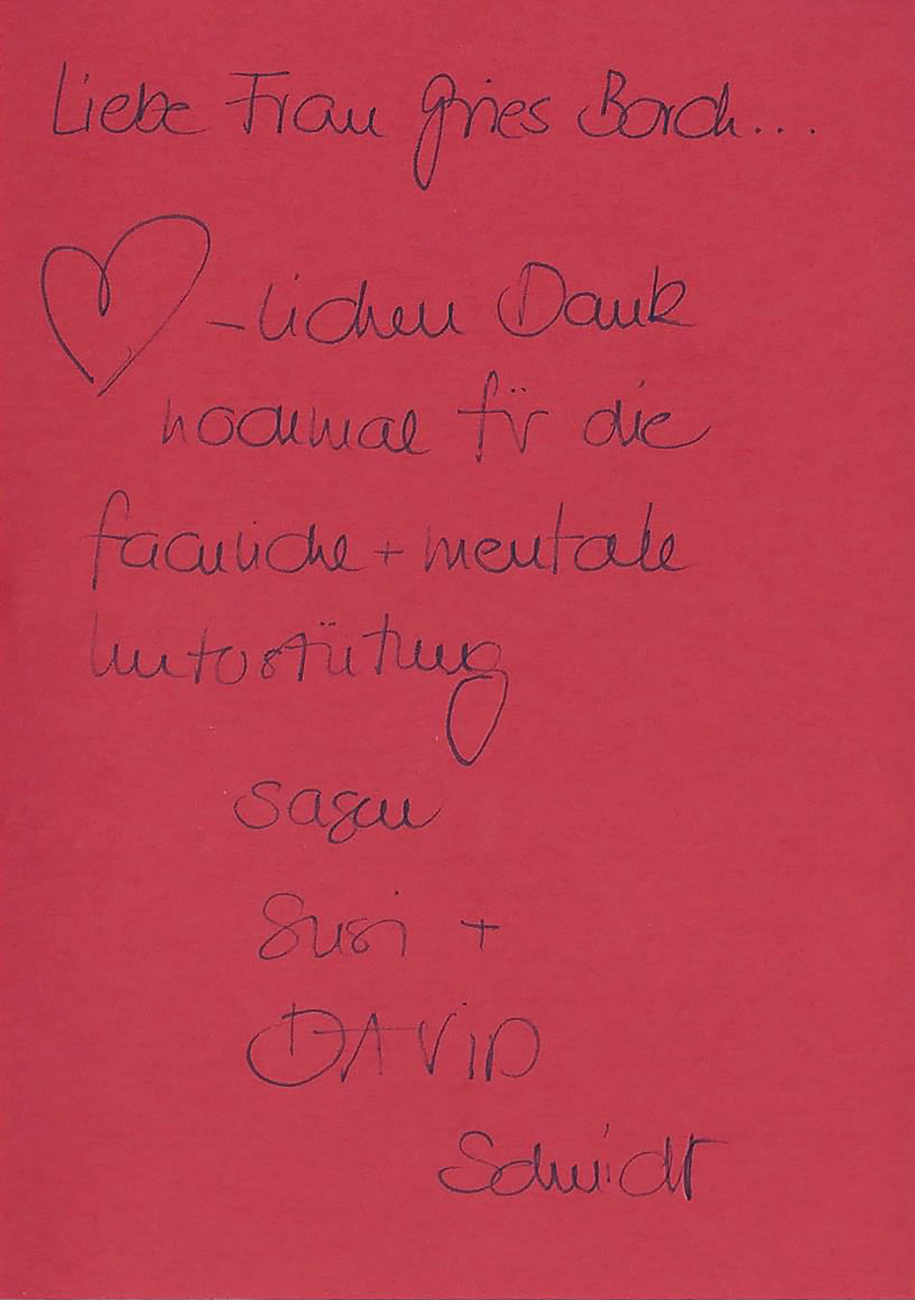 Liebe Frau Gries Borch....
♡-lichen Dank
nochmal für die
fachliche + mentale
Unterstütung
sagen
Susi +
DAVID
Schmidt